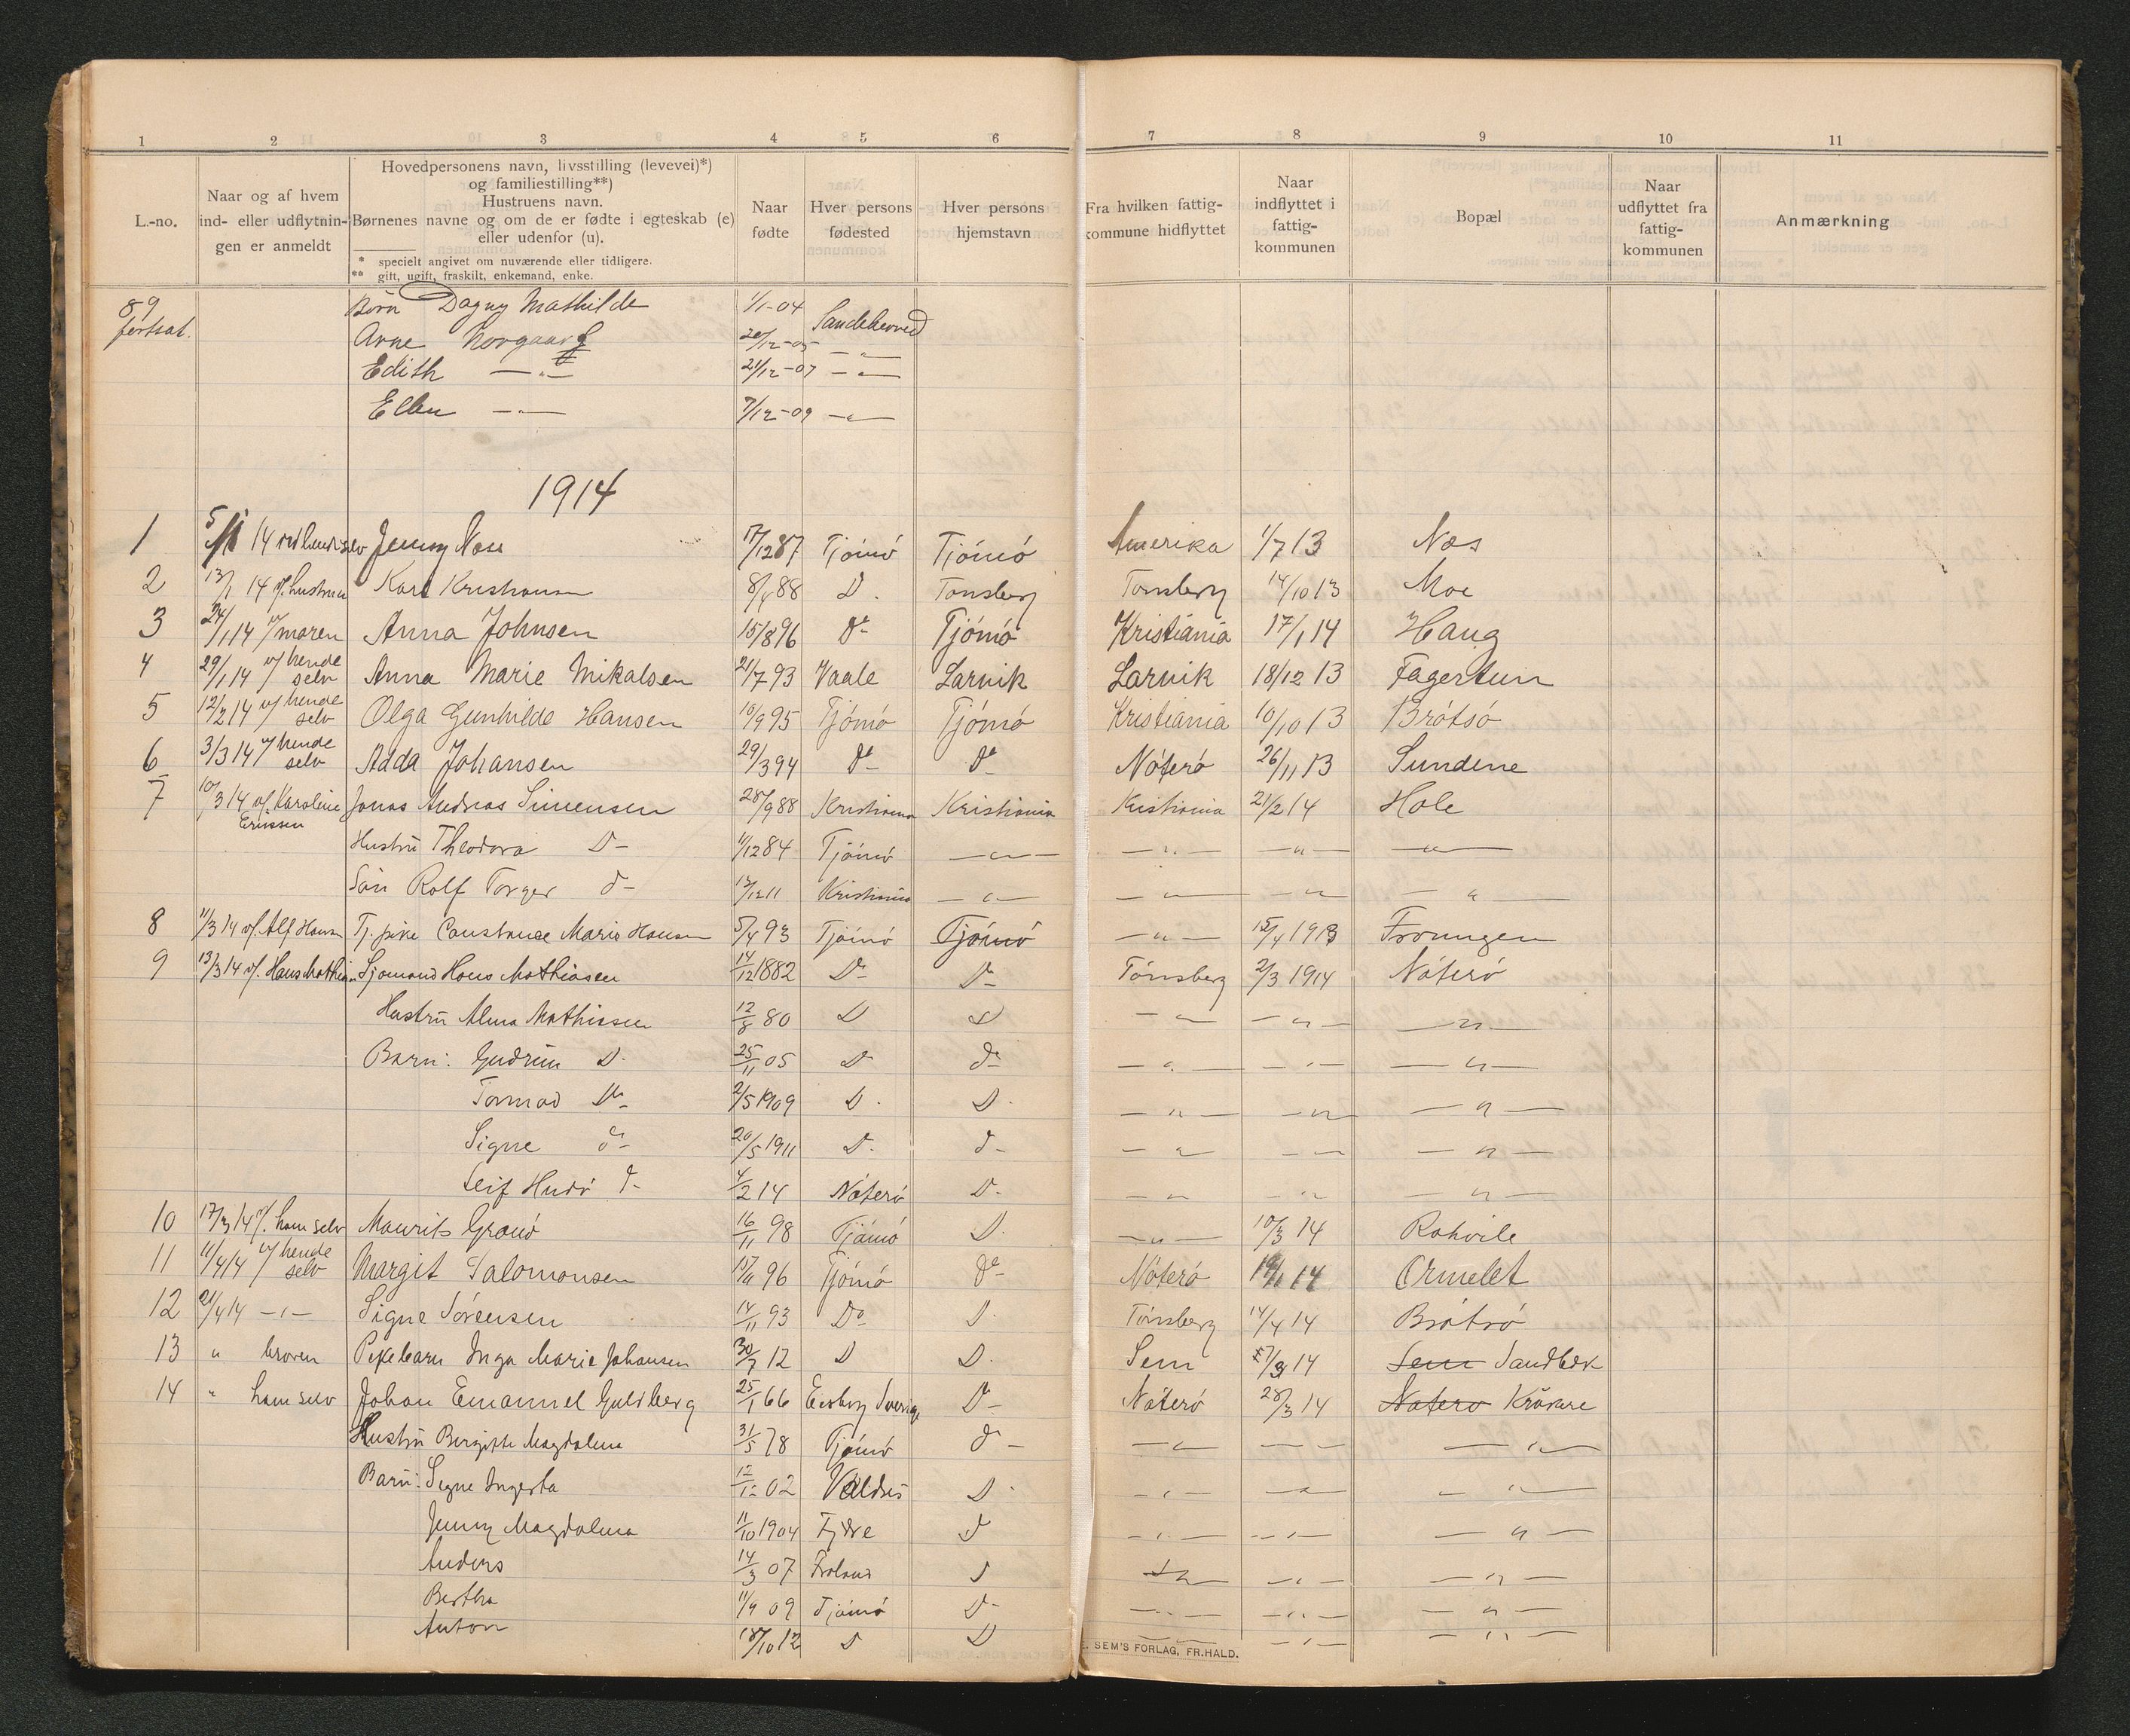 1 2 3 4 5 6 7 8 9 10 11
L.-no.
Naar og af hvem
ind- eller udflytnin-
gen er anmeldt
Hovedpersonens navn, livsstilling (levevei)*)
og familiestilling**)
Hustruens navn.
Børnenes navne og om de er fødte i egteskab (e)
eller udenfor (u).
* specielt angivet om nuværende eller tidligere.
** gift, ugift, fraskilt, enkemand, enke.
Naar
fødte
Hver persons
fødested
Hver persons
hjemstavn
Fra hvilken fattig-
kommune hidflyttet
Naar
indflyttet i
fattig-
kommunen
Bopæl
Naar
udflyttet fra
fattig-
kommunen
Anmærkning
89 fortsat. Börn Dagny Mathilde 1/1-04 Sandeherred
Arne Norgaard 20/12-05 —"—
Edith —"— 21/12-07 —"—
Ellen —"— 7/12-09 —"—
1914
1 5/1 14 ved hende selv Jenny Næss 17/12 87 Tjömö Tjömö Amerika 1/7 13 Næs
2 13/1 14 v/. hustru Karl Kristiansen 8/4 88 D. Tönsberg Tönsberg 14/10 13 Moe
3 24/1 14 v/ moren Anna Johnsen 15/8 96 do Tjömö Kristiania 17/1 14 Haug
4 29/1 14 v/ hende selv Anna Marie Mikalsen 21/7 93 Vaale Larvik Larvik 18/12 13 Fagertun
5 12/2 14 v/ hende selv Olga Gunhilde Hansen 10/9 95 Tjömö Tjömö Kristiania 10/10 13 Brötsö
6 3/3 14 v/ hende selv Adda Johansen 29/3 94 do do Nöterö 26/11 13 Sundene
7 10/3 14 v/. Karoline Erikssen Jonas Andreas Simensen 28/9 88 Kristiania Kristiania Kristiania 21/2 14 Hole
Hustru Theodora D— 11/12 84 Tjömö —"— —"— —"— —"—
Sön Rolf Torger d— 12/12 11 Kristiania —"— —"— —"— —"—
8 11/3 14 v/. Alf Hansen Tj. pike Constance Marie Hansen 5/4 93 Tjömö Tjömö —"— 15/4 1913 Frounger
9 13/3 14 v/. Hans Mathiasen Sjomand Hans Mathiasen 14/12 1882 D— D— Tönsberg 2/3 1914 Nöterö
Hustru Alma Mathiasen 12/8 80 D D —"— —"— —"—
Barn: Gudrun D. 25/11 05 D d— —"— —"— —"—
Tormod Do 2/5 1909 D. D. —"— —"— —"—
Signe do 20/5 1911 D. d— —"— —"— —"—
Leif Hudö d— 4/2 14 Nöterö D. —"— —"— —"—
10 17/3 14 v/. ham selv Maurits Granö 16/11 98 Tjömö D. —"— 10/3 14
11 11/4 14 v/ hende selv Margit Salomonsen 96 Tjömö do Nöterö 14 Ormelet
12 21/4 14 —"— Signe Sörensen 14/11 93 Do D. Tönsberg 14/4 14 Brötsö
13 " broren Pikebarn Inga Marie Johansen 30/7 12 D D. Sem 27/3 14 Sem Sandbæk
14 " ham selv Johan Emanuel Guldberg 25/1 66 D— Nöterö 28/3 14 Nöterö Kråkere
Hustru Bergitte Magdalena 31/5 78 Tjömö d— —"— —"— —"—
Barn: Signe Ingerta 12/12 02 D. —"— —"— —"—
Jenny Magdalena 11/10 1904 D —"— —"— —"—
Anders 14/3 07 Froland D —"— —"— —"—
Bertha 11/4 09 Tjömö D— —"— —"— —"—
Anton 18/10 12 D D —"— —"— —"—
E. SEM'S FORLAG, FR.HALD.